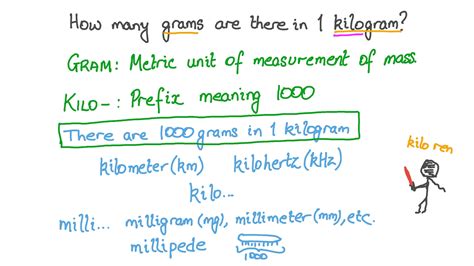 How many grams are there in 1 kilogram?
GRAM: Metric unit of measurement of mass.
KILO-: Prefix meaning 1000
There are 1000 grams in 1 kilogram
kilo ren
kilometer (km) kilohertz (kHz)
kilo...
milli... milligram (mg), millimeter (mm), etc.
millipede
1000